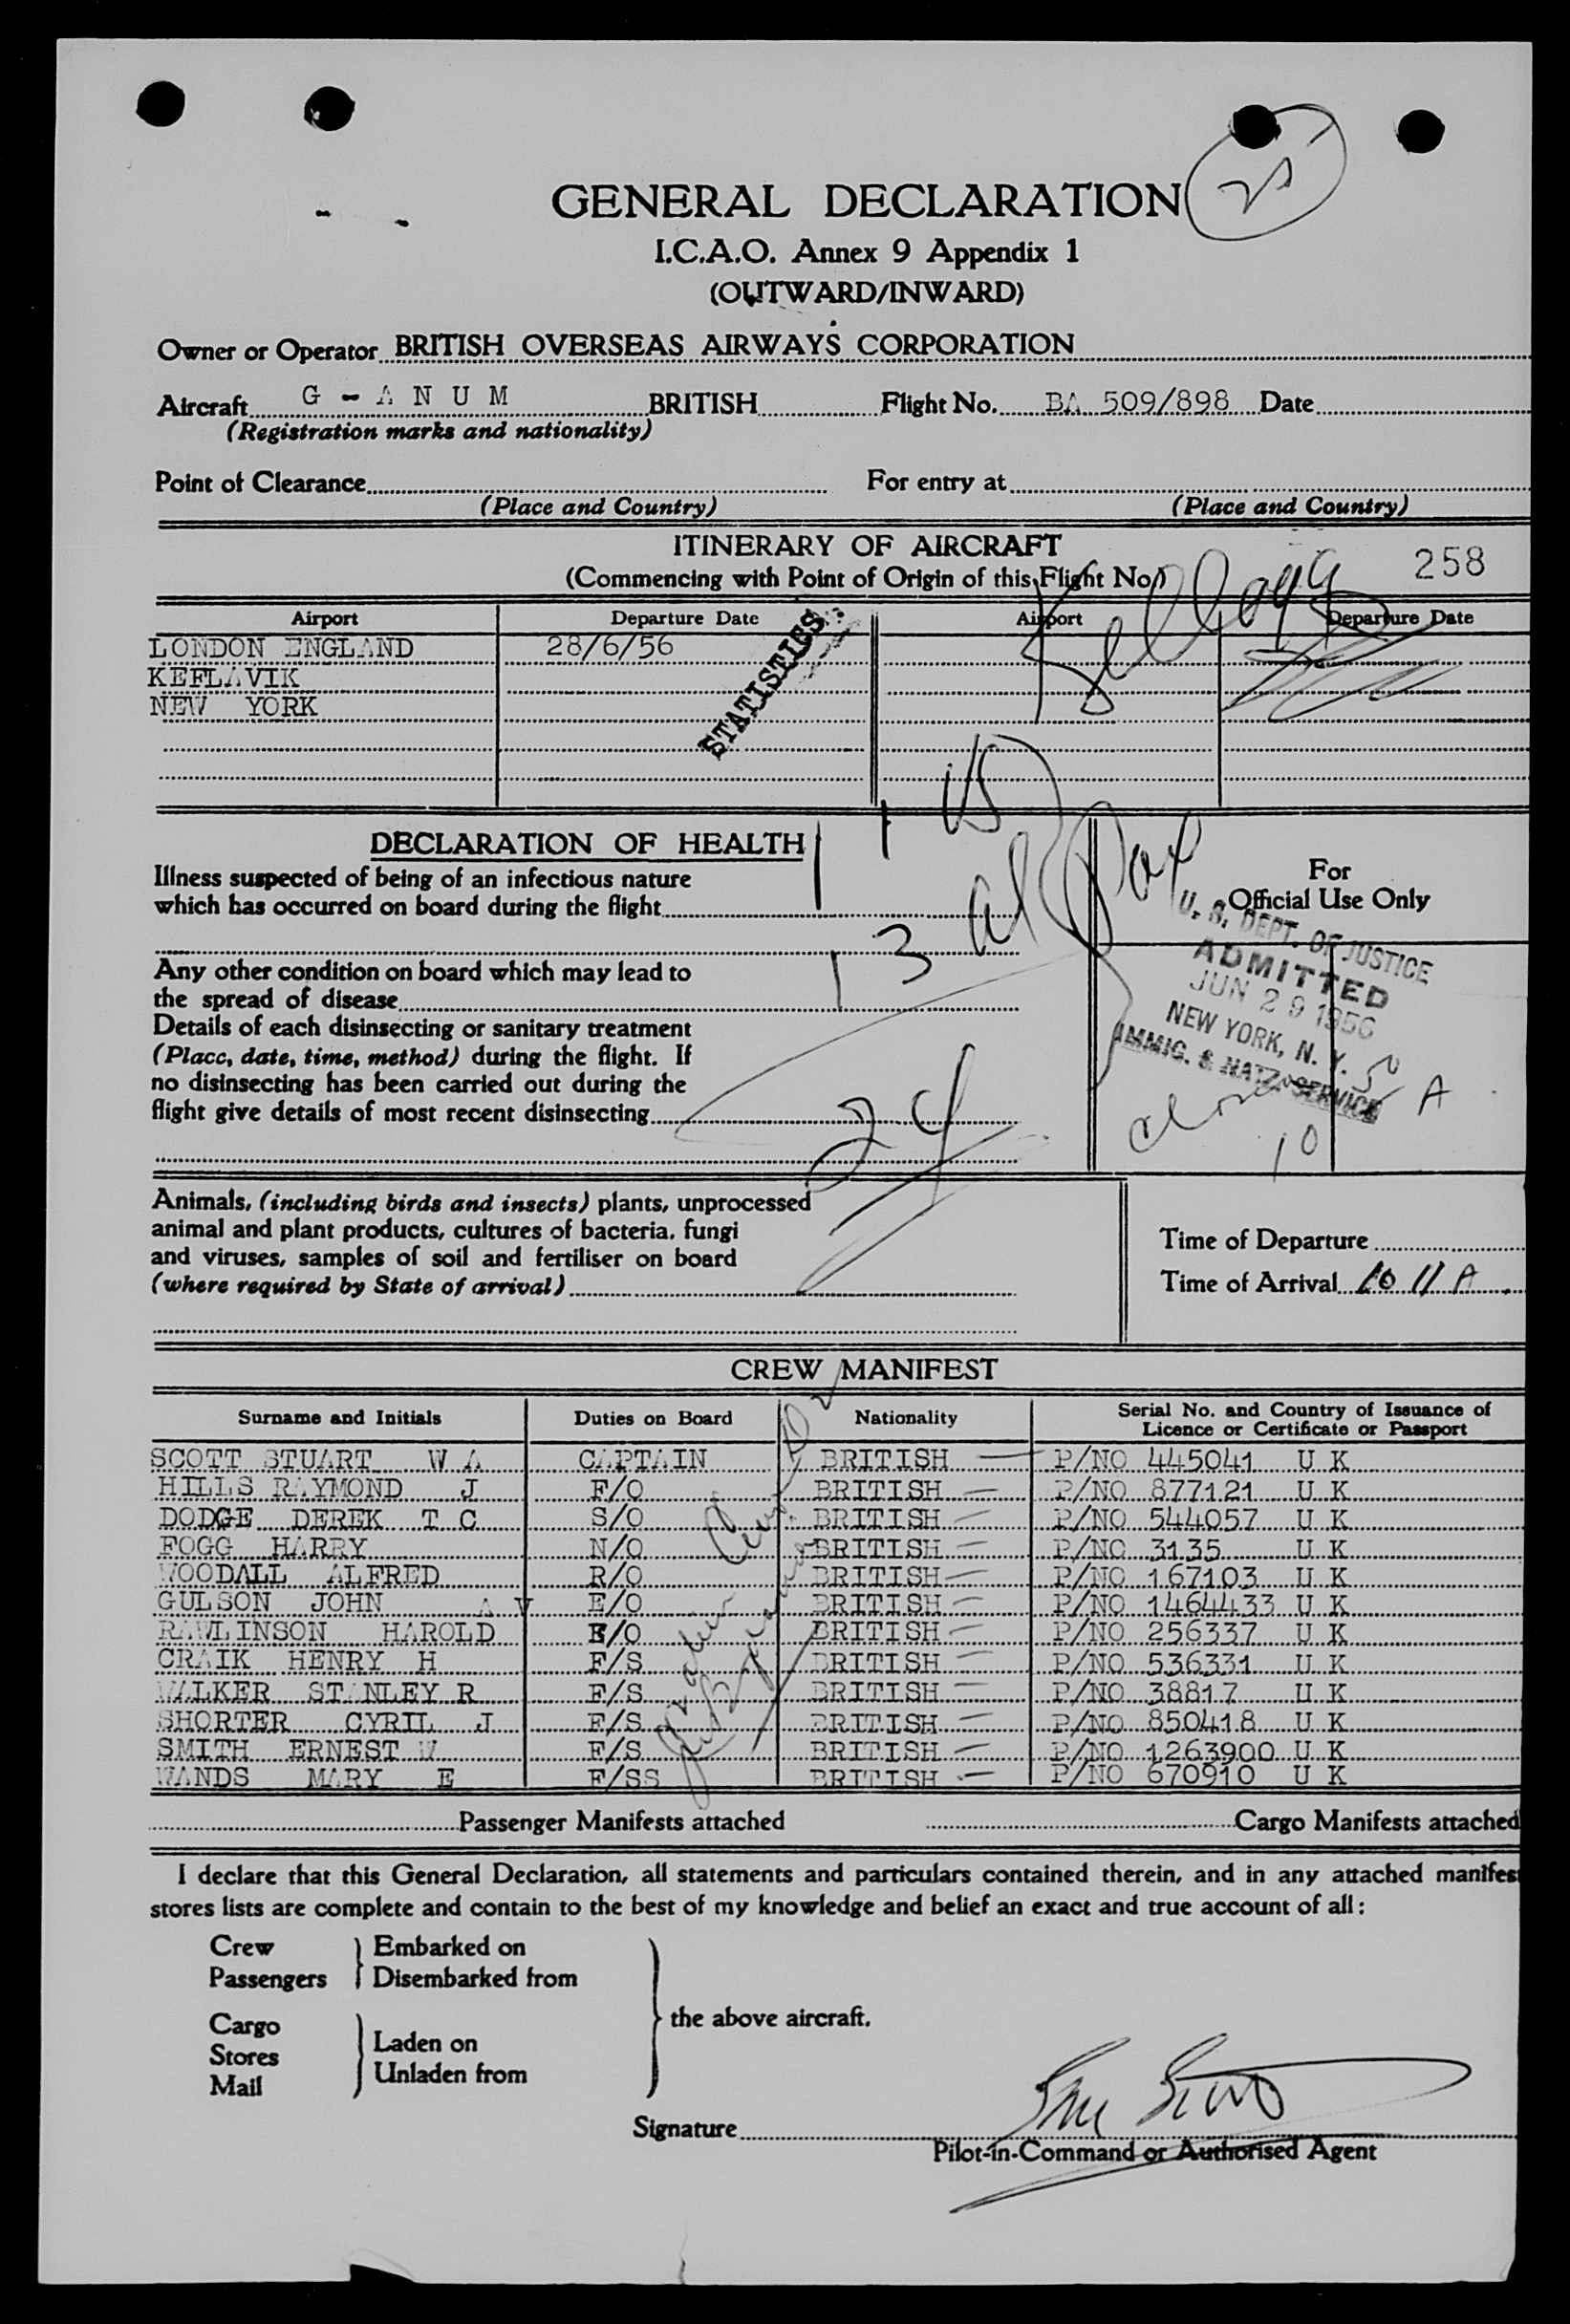 25
GENERAL DECLARATION
I.C.A.O. Annex 9 Appendix 1
(OUTWARD/INWARD)
Owner or Operator BRITISH OVERSEAS AIRWAYS CORPORATION
Aircraft G - A N U M BRITISH Flight No. BA 509/898 Date
(Registration marks and nationality)
Point of Clearance For entry at
(Place and Country) (Place and Country)
ITINERARY OF AIRCRAFT
(Commencing with Point of Origin of this Flight No.) 258
Kellogg
Airport Departure Date Airport Departure Date
LONDON ENGLAND 28/6/56
KEFLAVIK
NEW YORK
STATISTICS
1 US
13 al Pax
24
DECLARATION OF HEALTH
Illness suspected of being of an infectious nature
which has occurred on board during the flight
Any other condition on board which may lead to
the spread of disease
Details of each disinsecting or sanitary treatment
(Place, date, time, method) during the flight. If
no disinsecting has been carried out during the
flight give details of most recent disinsecting
For
Official Use Only
U. S. DEPT. OF JUSTICE
ADMITTED
JUN 29 1956
NEW YORK, N. Y.
IMMIG. & NATZ. SERVICE
10 A
Animals, (including birds and insects) plants, unprocessed
animal and plant products, cultures of bacteria, fungi
and viruses, samples of soil and fertiliser on board
(where required by State of arrival)
Time of Departure
Time of Arrival 10 11 A
CREW MANIFEST
Surname and Initials Duties on Board Nationality Serial No. and Country of Issuance of
Licence or Certificate or Passport
SCOTT STUART W A CAPTAIN BRITISH P/NO 445041 U K
HILLS RAYMOND J F/O BRITISH P/NO 877121 U K
DODGE DEREK T C S/O BRITISH P/NO 544057 U K
FOGG HARRY N/O BRITISH P/NO 3135 U K
WOODALL ALFRED R/O BRITISH P/NO 167103 U K
GULSON JOHN A V E/O BRITISH P/NO 1464433 U K
RAWLINSON HAROLD E/O BRITISH P/NO 256337 U K
CRAIK HENRY H F/S BRITISH P/NO 536331 U K
WALKER STANLEY R F/S BRITISH P/NO 38817 U K
SHORTER CYRIL J F/S BRITISH P/NO 850418 U K
SMITH ERNEST W F/S BRITISH P/NO 1263900 U K
WANDS MARY E F/SS BRITISH P/NO 670910 U K
Passenger Manifests attached Cargo Manifests attached
I declare that this General Declaration, all statements and particulars contained therein, and in any attached manifest
stores lists are complete and contain to the best of my knowledge and belief an exact and true account of all:
Crew Embarked on
Passengers Disembarked from
the above aircraft.
Cargo
Stores Laden on
Mail Unladen from
Signature
Pilot-in-Command or Authorised Agent